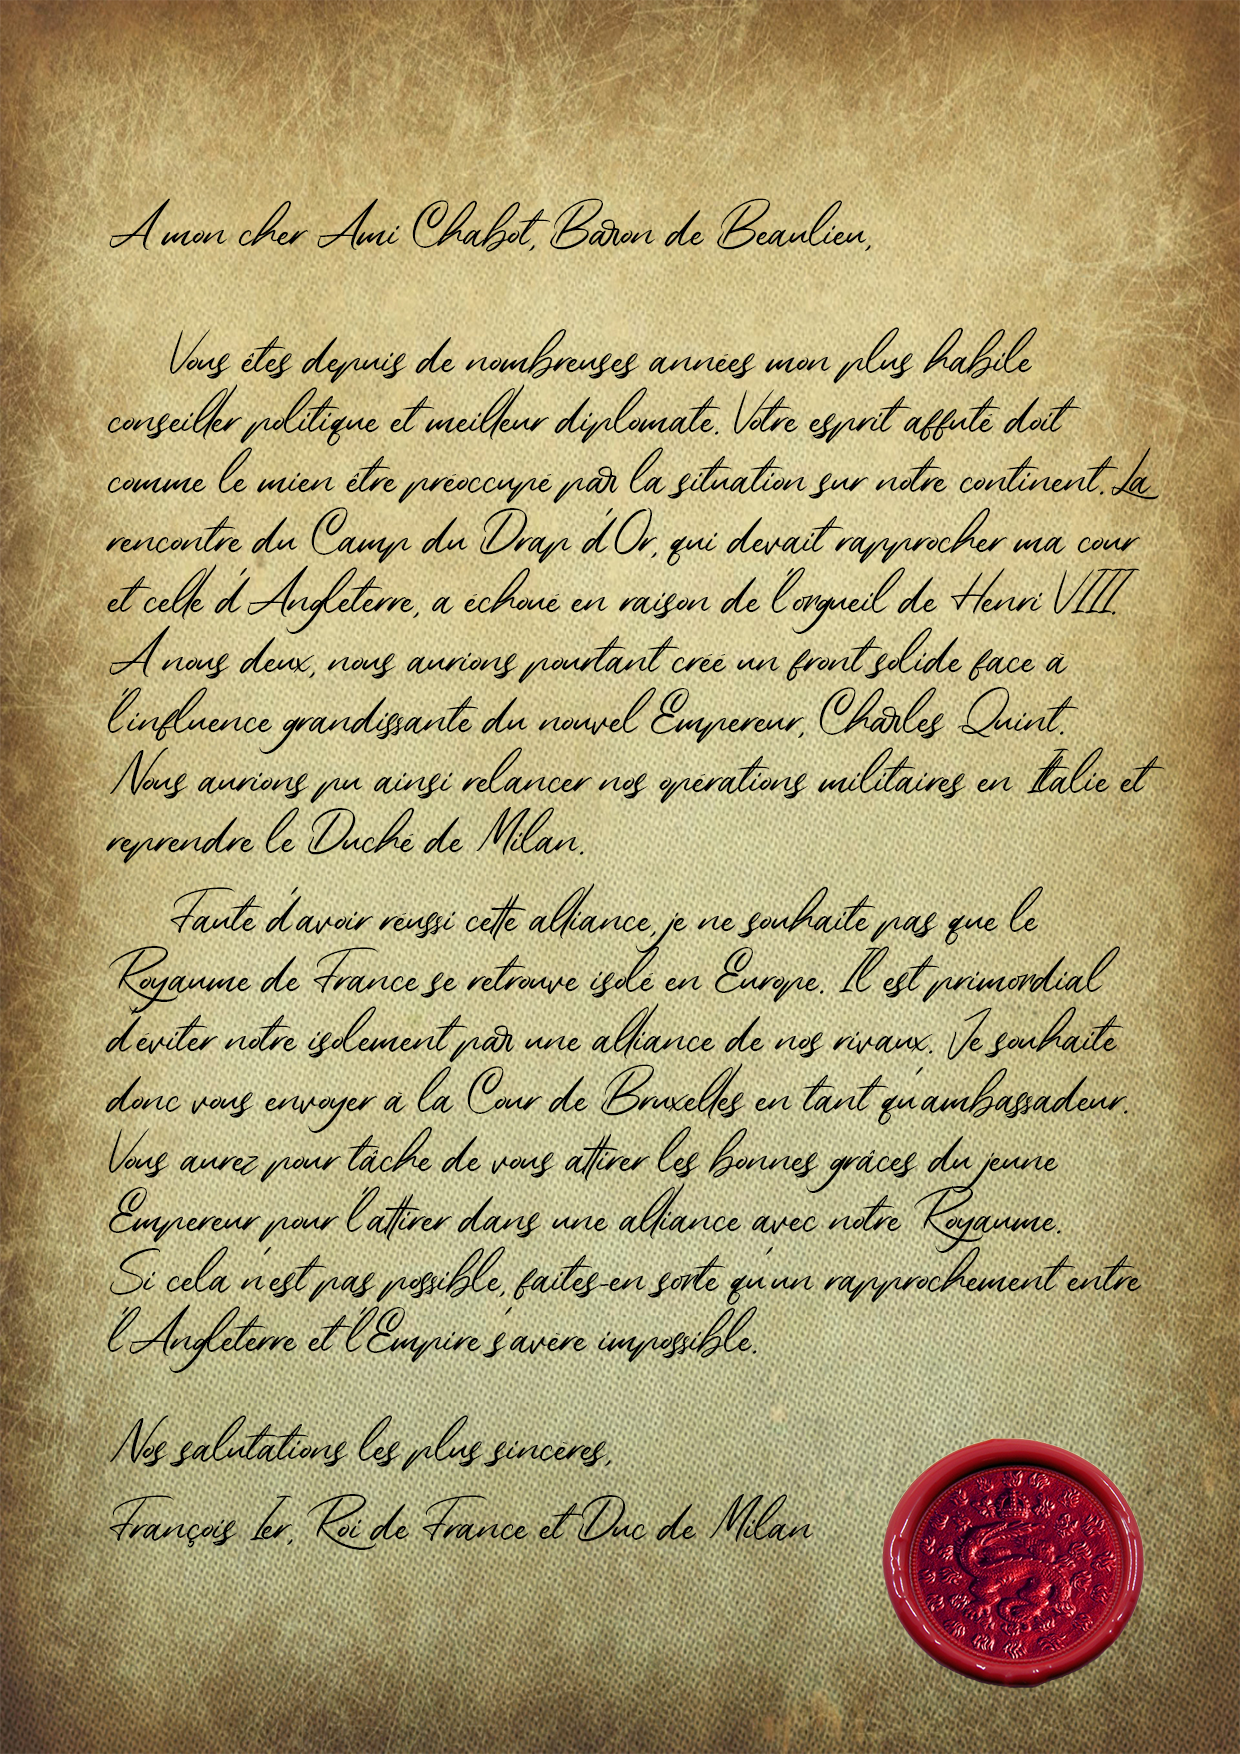 A mon cher Ami Chabot, Baron de Beaulieu,
Vous êtes depuis de nombreuses années mon plus habile
conseiller politique et meilleur diplomate. Votre esprit affuté doit
comme le mien être préoccupé par la situation sur notre continent. La
rencontre du Camp du Drap d'Or, qui devait rapprocher ma cour
et celle d'Angleterre, a échoué en raison de l'orgueil de Henri VIII.
A nous deux, nous aurions pourtant créé un front solide face à
l'influence grandissante du nouvel Empereur, Charles Quint.
Nous aurions pu ainsi relancer nos opérations militaires en Italie et
reprendre le Duché de Milan.
Faute d'avoir réussi cette alliance, je ne souhaite pas que le
Royaume de France se retrouve isolé en Europe. Il est primordial
d'éviter notre isolement par une alliance de nos rivaux. Je souhaite
donc vous envoyer à la Cour de Bruxelles en tant qu'ambassadeur.
Vous aurez pour tâche de vous attirer les bonnes grâces du jeune
Empereur pour l'attirer dans une alliance avec notre Royaume.
Si cela n'est pas possible, faites-en sorte qu'un rapprochement entre
l'Angleterre et l'Empire s'avère impossible.
Nos salutations les plus sincères,
François Ier, Roi de France et Duc de Milan